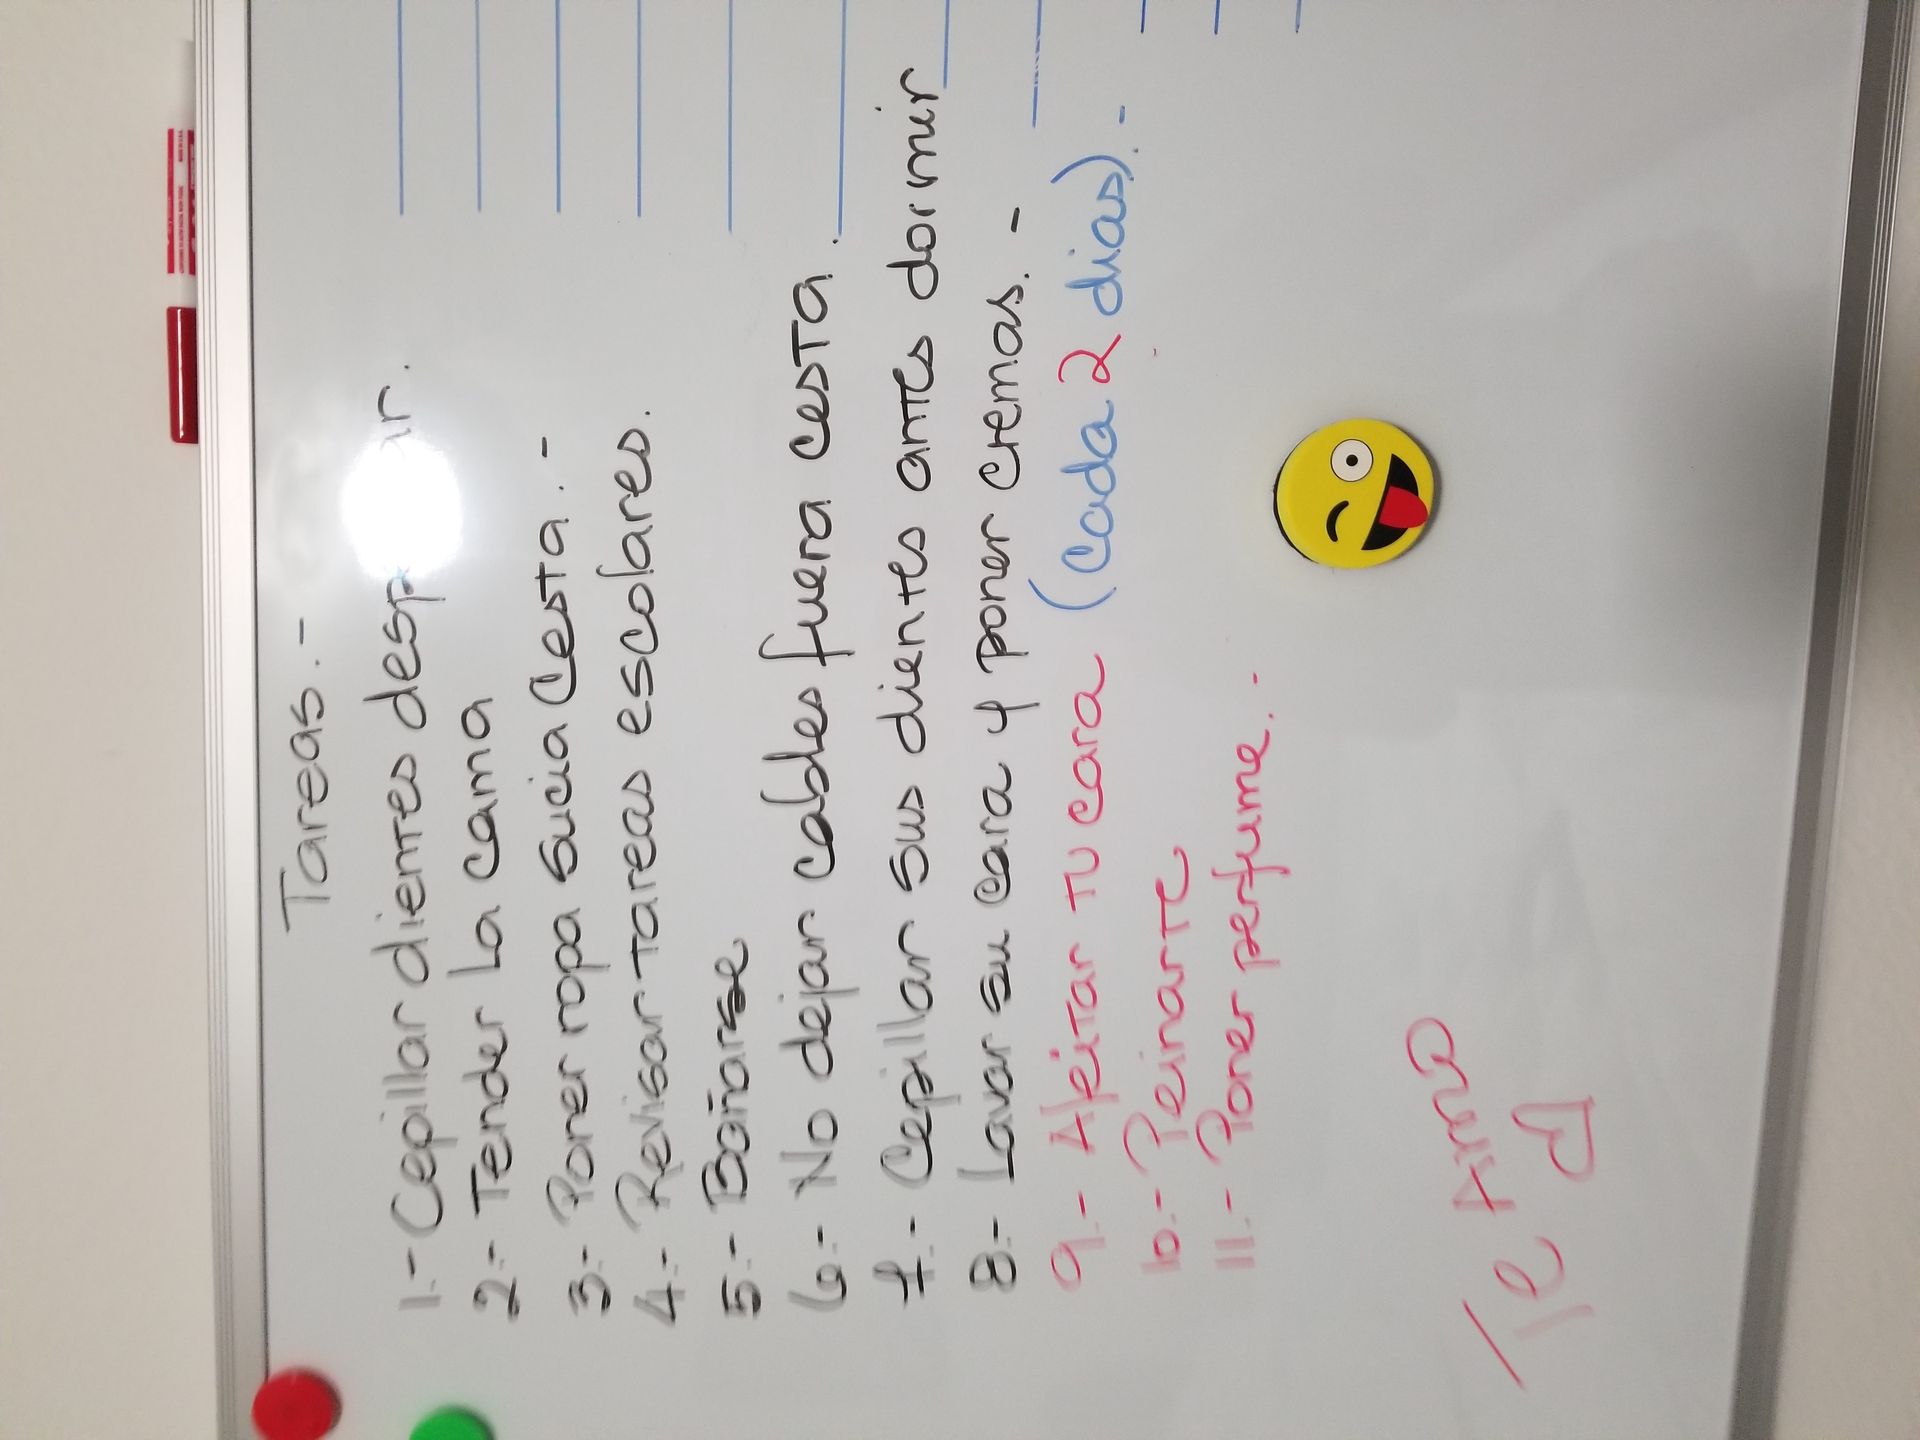 Tareas.-
1.- Cepillar dientes
2.- Tender La cama
3.- Poner ropa sucia Cesta.-
4.- Revisar tareas escolares.
5.- Bañarse
6.- No dejar cables fuera cesta.
7.- Cepillar sus dientes antes dormir
8.- Lavar su cara y poner cremas.-
9.- Afeitar tu cara (cada 2 dias).-
10.- Peinarte
11.- Poner perfume.-
Te Amo